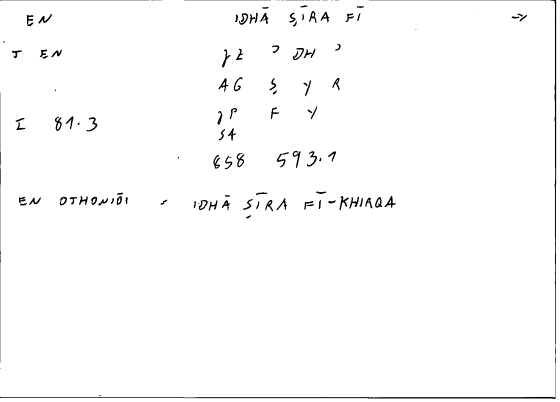 EN IDHĀ ṢĪRA FĪ →
J EN γE ʾ DH ʾ
AG Ṣ Y R
I 81.3 γP F Y
S4
658 593.1
EN OTHONIŌI - IDHĀ ṢĪRA FĪ-KHIRQA